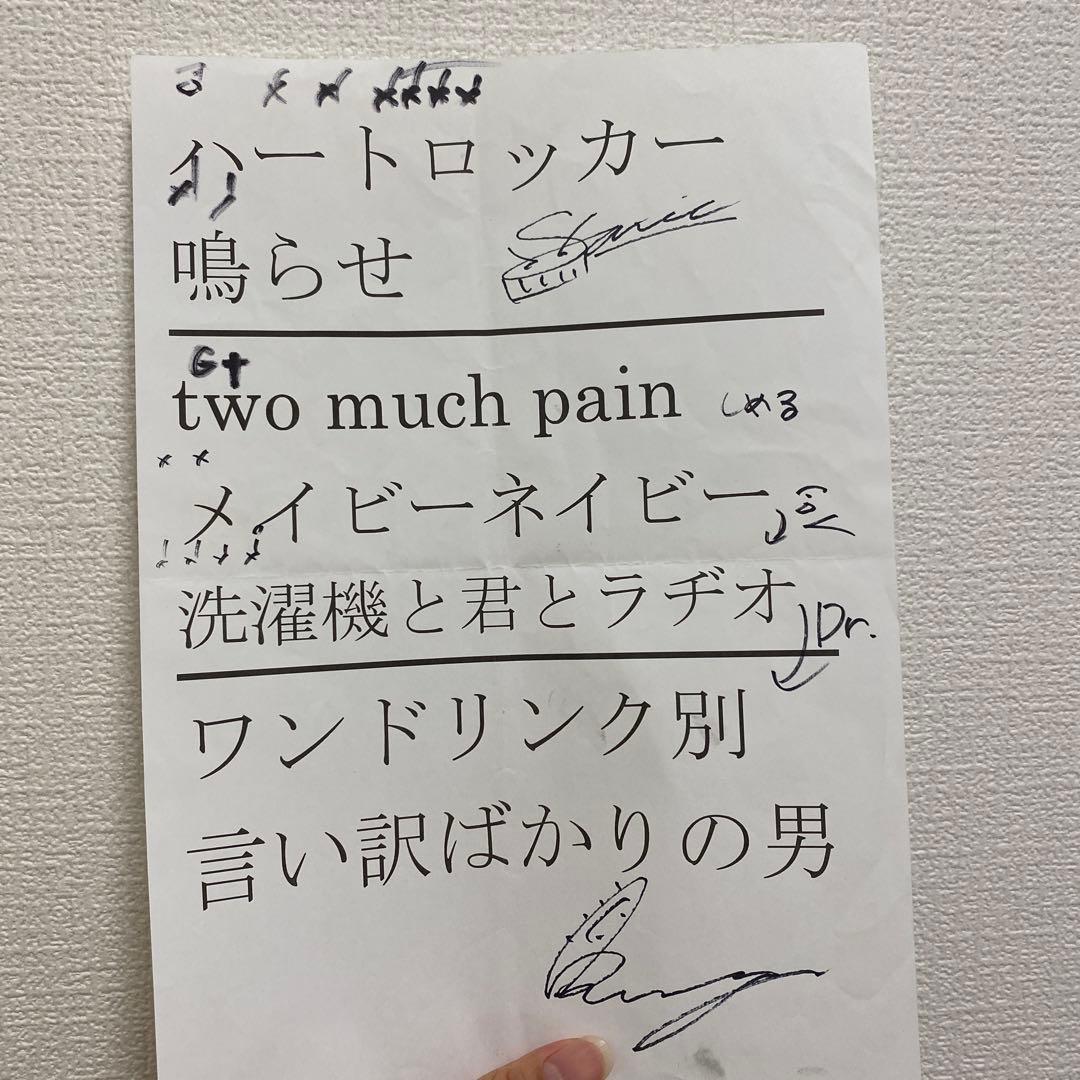 ハートロッカー
鳴らせ
Gt
two much pain しめる
メイビーネイビー
洗濯機と君とラヂオ
Dr.
ワンドリンク別
言い訳ばかりの男